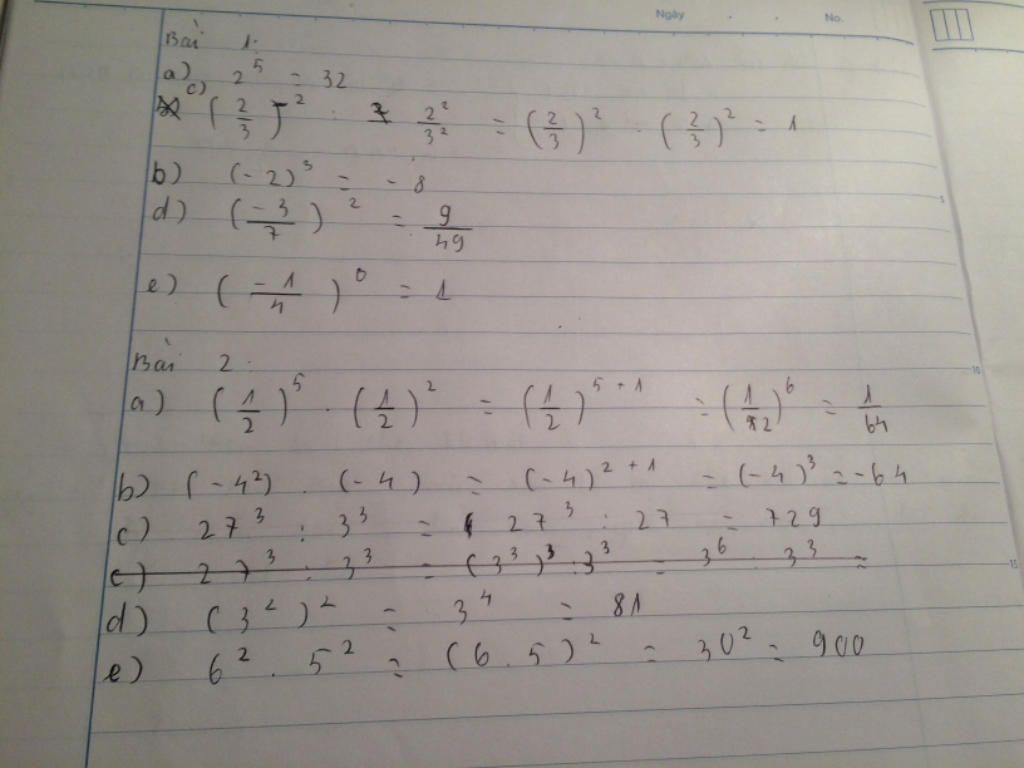 Ngày . . No.
Bài 1.
a) 2^5 = 32
c) (2/3)^2 : 2^2/3^2 = (2/3)^2 . (2/3)^2 = 1
b) (-2)^3 = -8
d) (-3/7)^2 = 9/49
e) (-1/4)^0 = 1
Bài 2.
a) (1/2)^5 . (1/2)^2 = (1/2)^(5+1) = (1/2)^6 = 1/64
b) (-4^2) . (-4) = (-4)^(2+1) = (-4)^3 = -64
c) 27^3 : 3^3 = 27^3 : 27 = 729
c) 27^3 : 3^3 = (3^3)^3 : 3^3 = 3^6 . 3^3 =
d) (3^2)^2 = 3^4 = 81
e) 6^2 . 5^2 = (6.5)^2 = 30^2 = 900
5
10
15